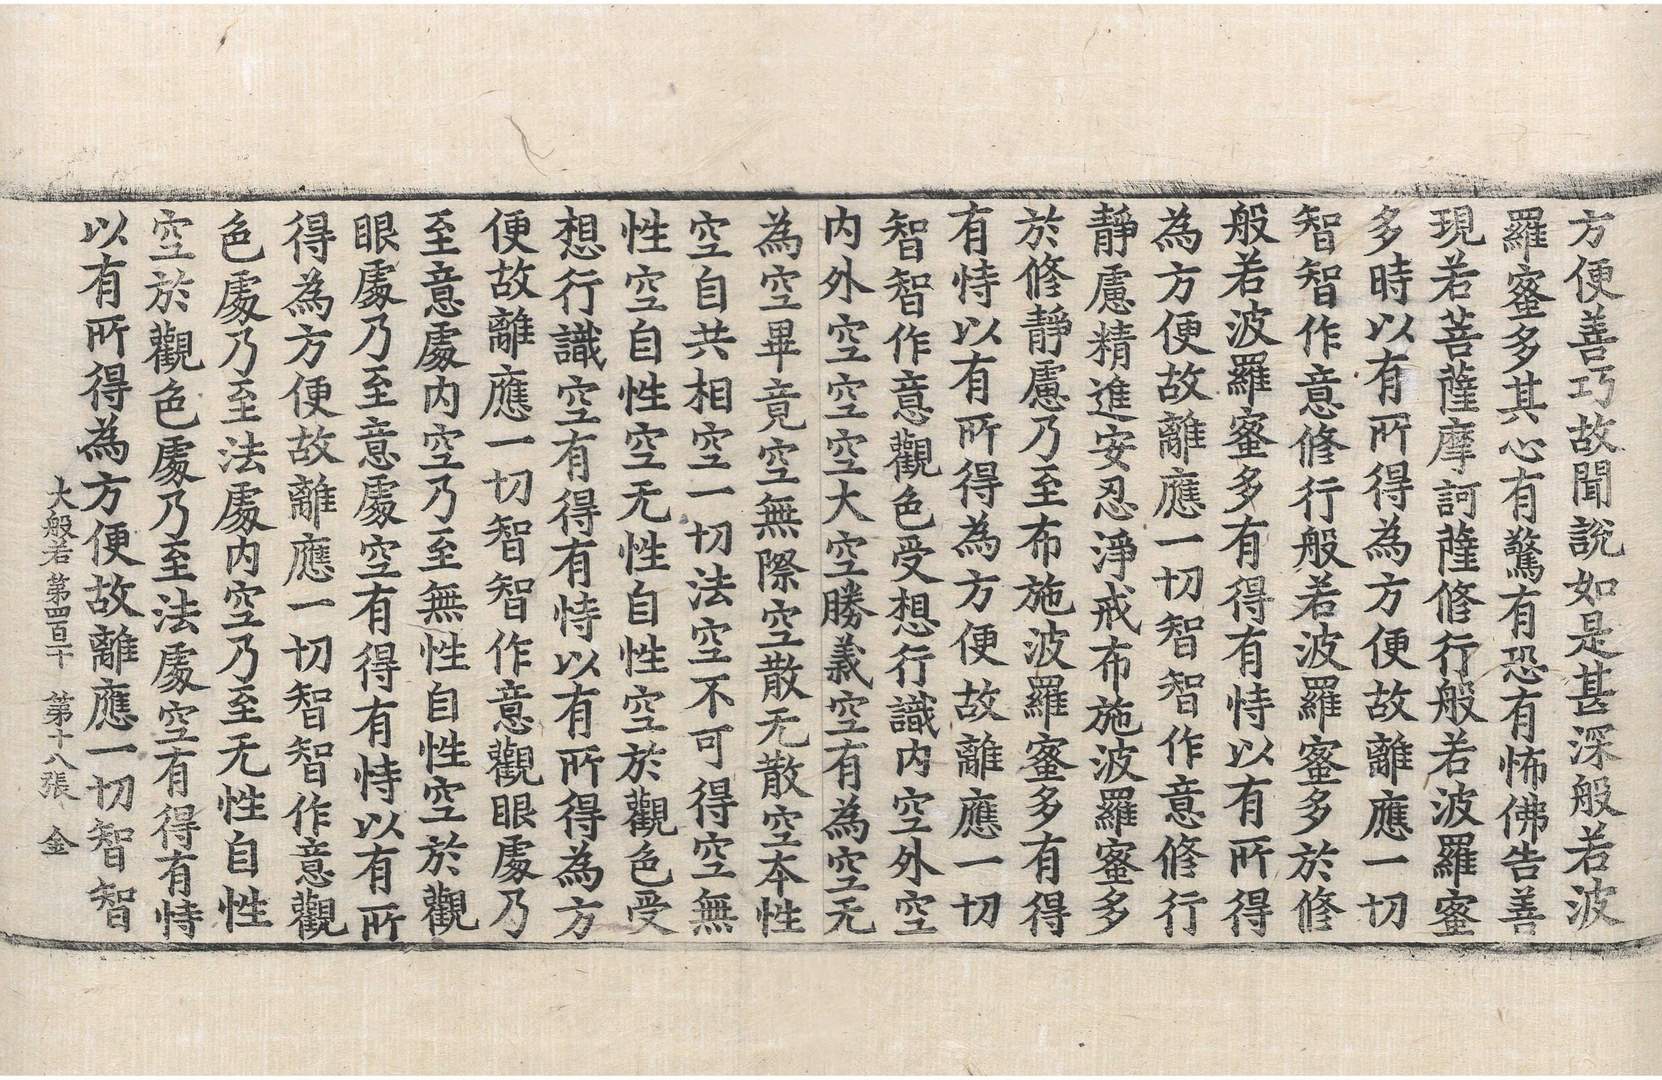 方便善巧故聞說如是甚深般若波
羅蜜多其心有驚有恐有怖佛告善
現若菩薩摩訶薩修行般若波羅蜜
多時以有所得為方便故離應一切
智智作意修行般若波羅蜜多於修
般若波羅蜜多有得有恃以有所得
為方便故離應一切智智作意修行
靜慮精進安忍淨戒布施波羅蜜多
於修靜慮乃至布施波羅蜜多有得
有恃以有所得為方便故離應一切
智智作意觀色受想行識內空外空
內外空空空大空勝義空有為空无
為空畢竟空無際空散无散空本性
空自共相空一切法空不可得空無
性空自性空无性自性空於觀色受
想行識空有得有恃以有所得為方
便故離應一切智智作意觀眼處乃
至意處內空乃至無性自性空於觀
眼處乃至意處空有得有恃以有所
得為方便故離應一切智智作意觀
色處乃至法處內空乃至无性自性
空於觀色處乃至法處空有得有恃
以有所得為方便故離應一切智智
大般若 第四百十 第十八張 金